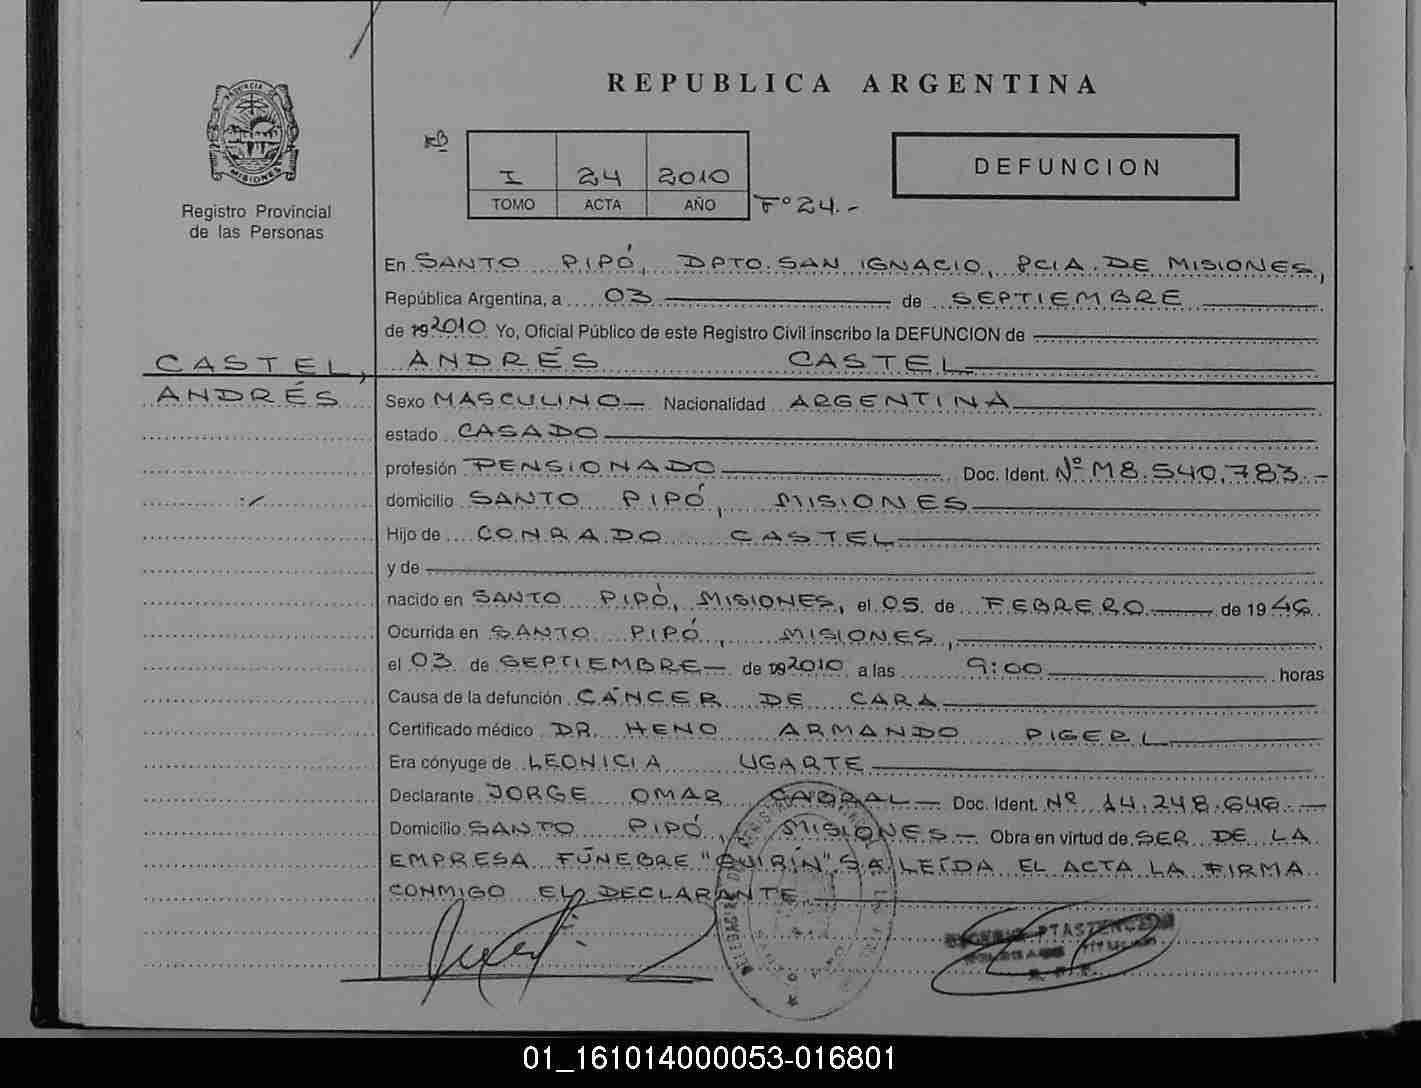 REPUBLICA ARGENTINA
PROVINCIA DE
MISIONES
Registro Provincial
de las Personas
I 24 2010
TOMO ACTA AÑO
Fº 24.-
DEFUNCION
En SANTO PIPÓ, DPTO. SAN IGNACIO, PCIA. DE MISIONES,
República Argentina, a 03 de SEPTIEMBRE
de 192010 Yo, Oficial Público de este Registro Civil inscribo la DEFUNCION de
CASTEL, ANDRÉS CASTEL
ANDRÉS
Sexo MASCULINO Nacionalidad ARGENTINA
estado CASADO
profesión PENSIONADO Doc. Ident. Nº M8.540.783.-
domicilio SANTO PIPÓ, MISIONES
Hijo de CONRADO CASTEL
y de
nacido en SANTO PIPÓ, MISIONES, el 05 de FEBRERO de 1946
Ocurrida en SANTO PIPÓ, MISIONES,
el 03 de SEPTIEMBRE de 192010 a las 9:00 horas
Causa de la defunción CÁNCER DE CARA
Certificado médico DR. HENO ARMANDO PIGERL
Era cónyuge de LEONICIA UGARTE
Declarante JORGE OMAR CABRAL Doc. Ident. Nº 14.248.646.-
Domicilio SANTO PIPÓ, MISIONES.- Obra en virtud de SER DE LA
EMPRESA FÚNEBRE "QUIRÍN" S.A LEÍDA EL ACTA LA FIRMA
CONMIGO EL DECLARANTE
01_161014000053-016801